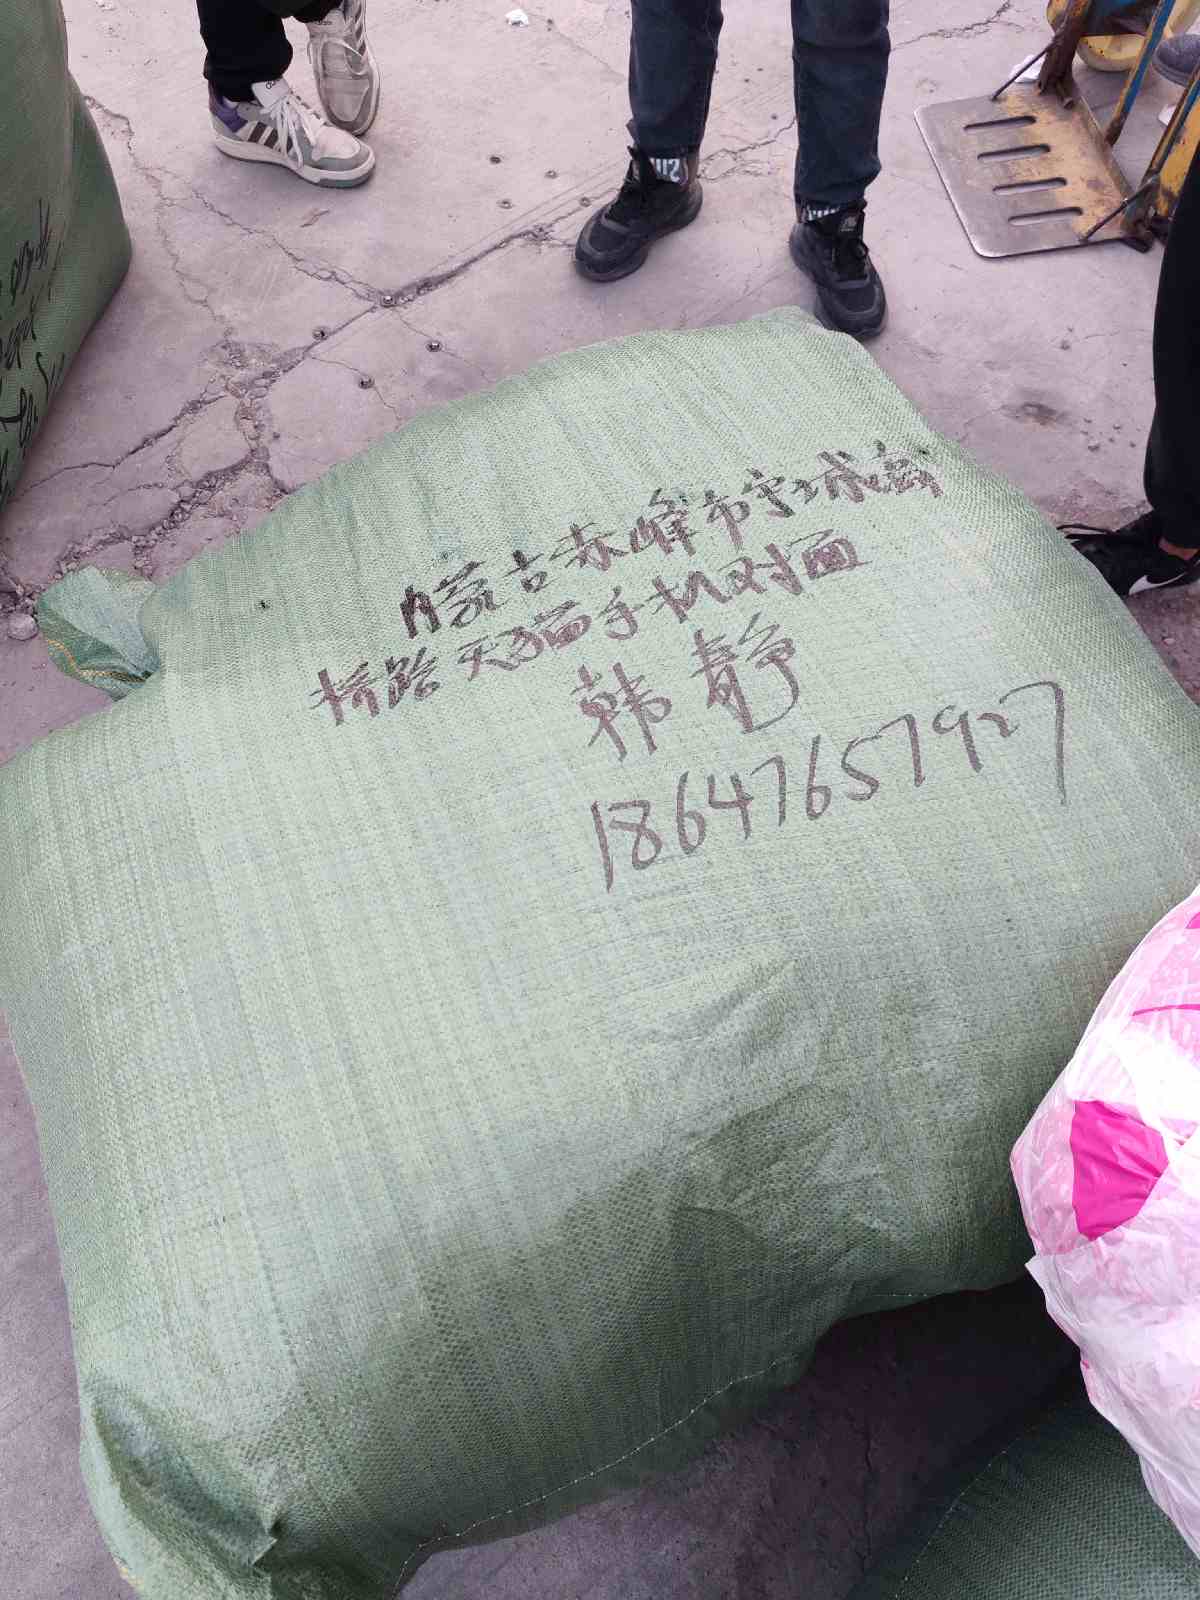 内蒙古赤峰市宁城富
桥路天猫手机对面
韩静
18647657927